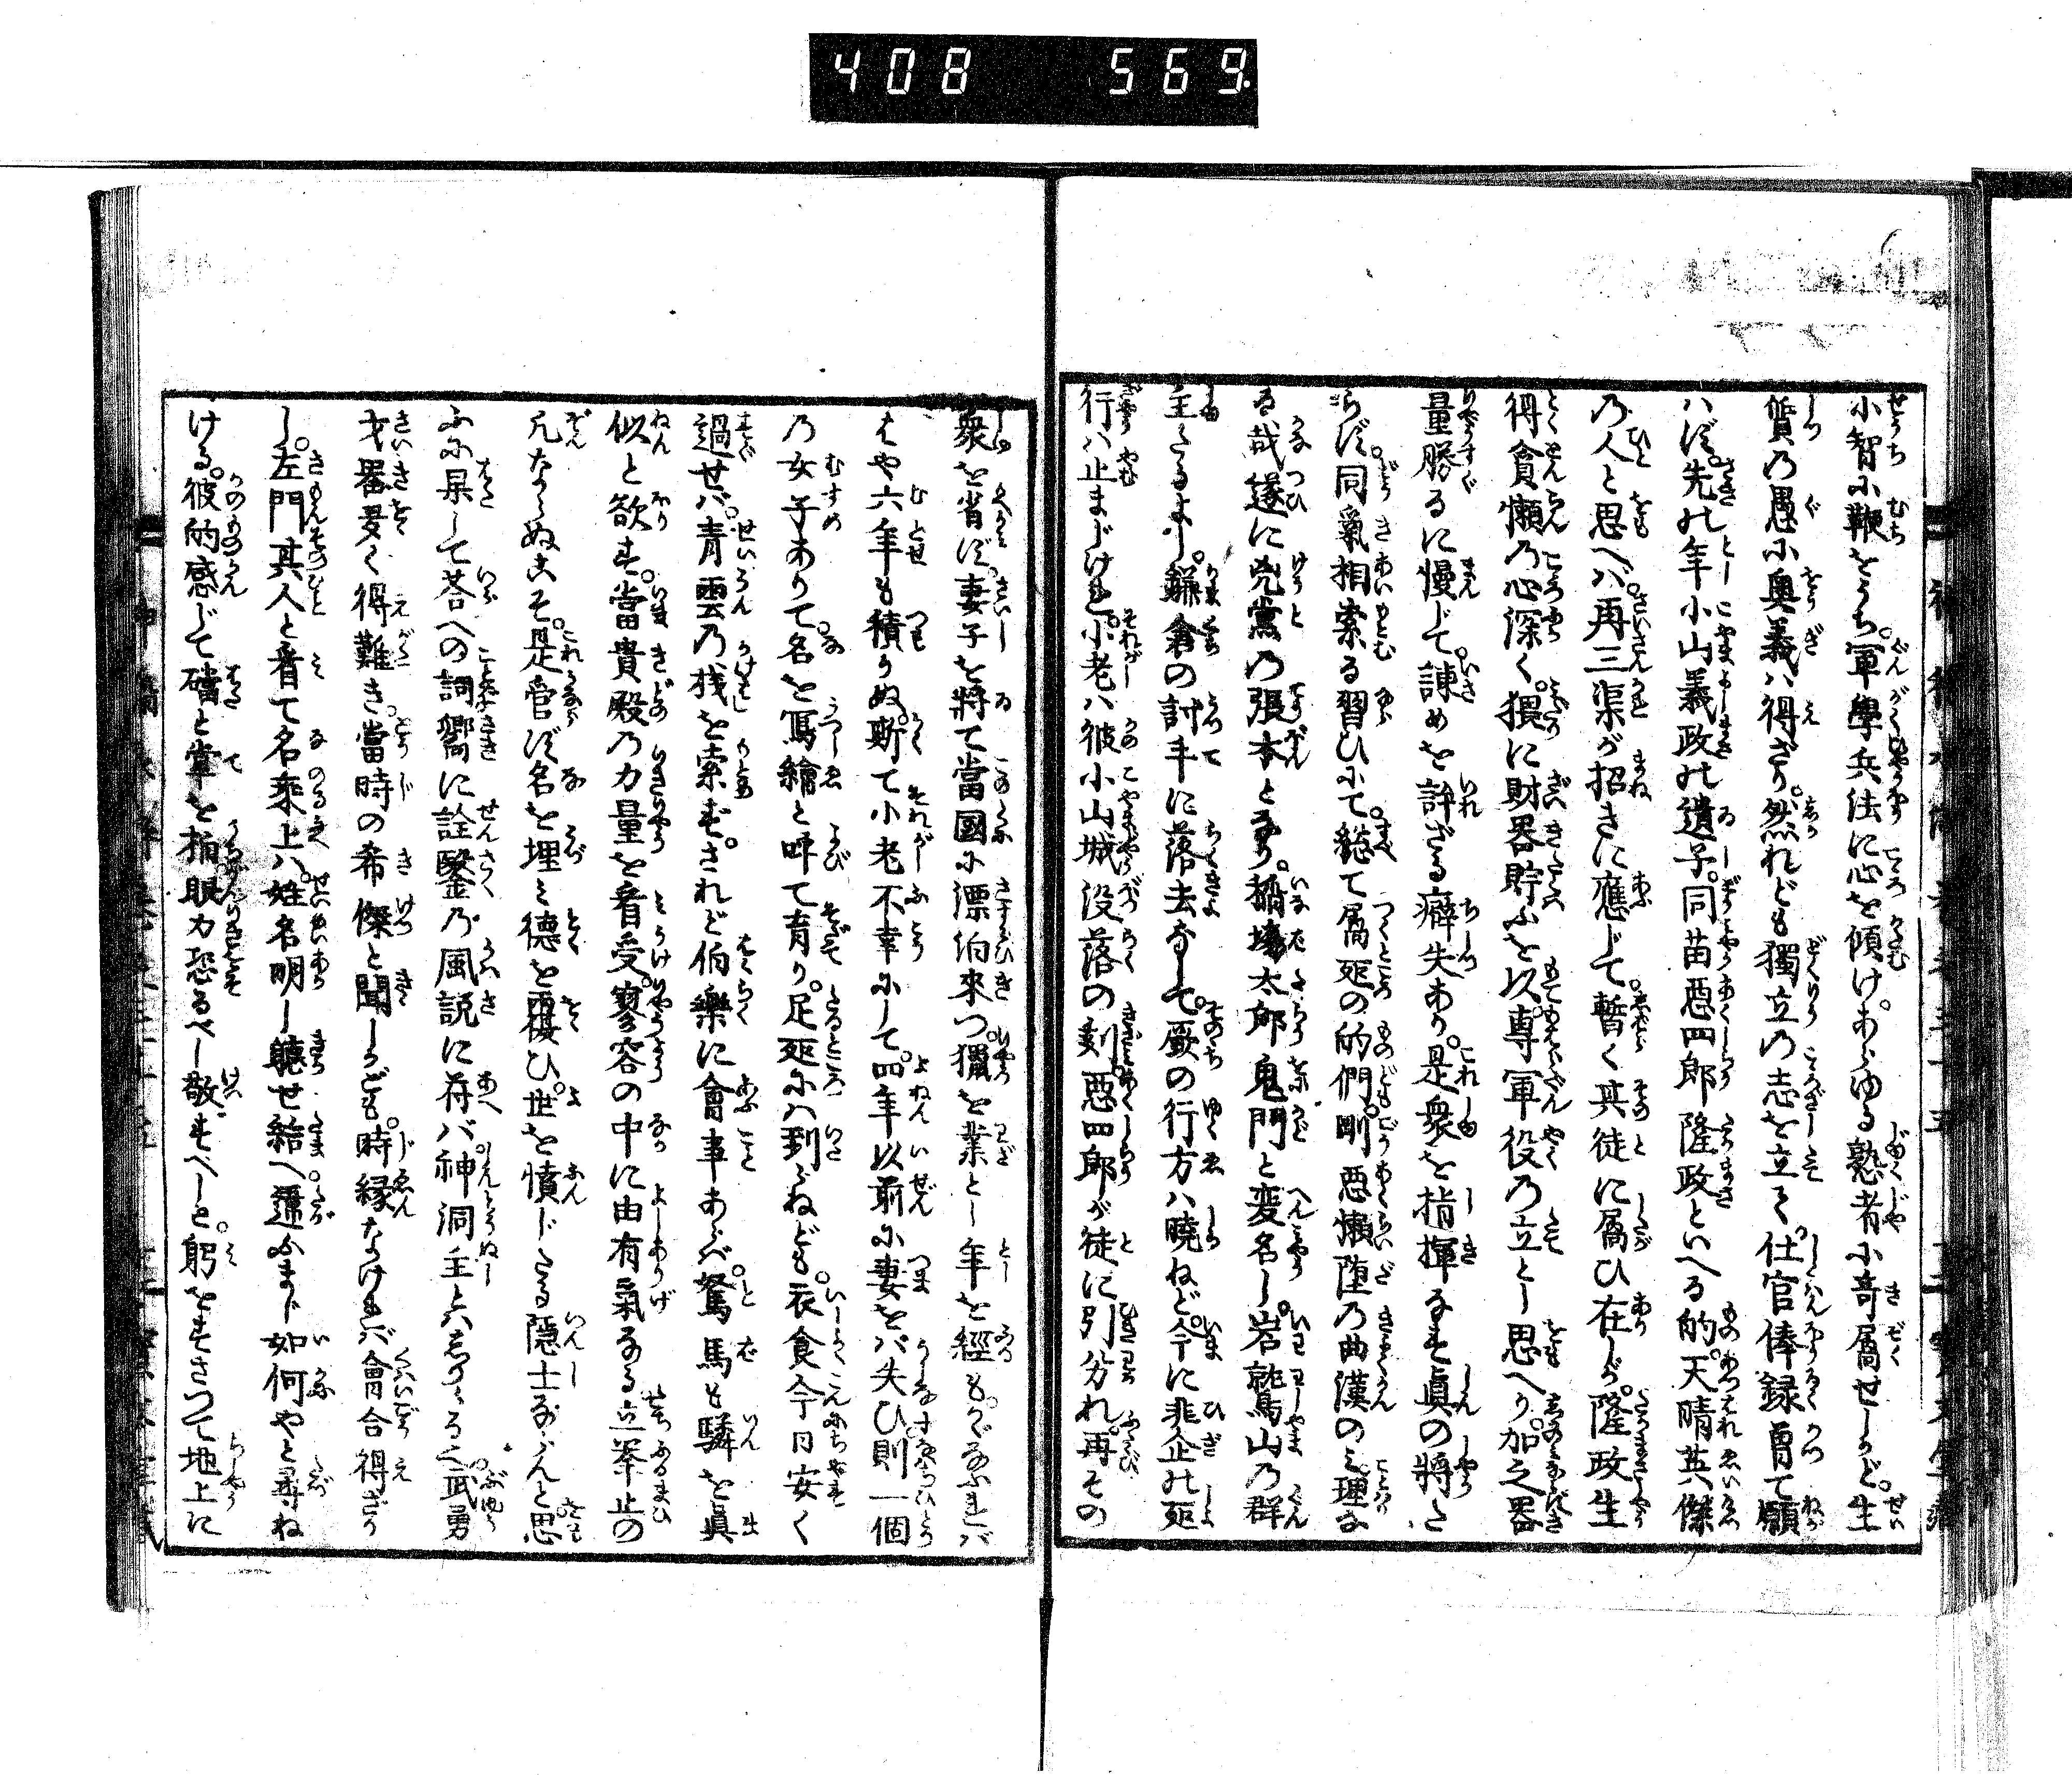 408 569
小智に鞭をうち。軍學兵法に心を傾け。あらゆる熟者に奇属せしかど。生
質乃愚に奥義ハ得ざり。然れども獨立乃志を立て。仕官俸録曽て願
ハず。先の年小山義政の遺子。同苗悪四郎隆政といへる的。天晴英傑
乃人と思へバ。再三渠が招きに應じて。暫く其徒に属ひ在しが。隆政生
得貪懶乃心深く。猥に財器貯ふを以。専軍役乃立とし思へり。加之器
量勝るに慢じて。諫めを許ざる癖失あり。是衆を指揮なす真の将た
らず。同氣相索る習ひにて。総て属処の的們。剛悪懶堕乃曲漢のミ。理な
る哉遂に兇黨乃張本となり。稲塲太郎鬼門と変名し。岩鷲山乃群
主たるより。鎌倉の討手に落去なして。厥の行方ハ暁ねど。今に非企の処
行ハ止まじけれ。小老ハ彼小山城没落の刻。悪四郎が徒に引分れ。再その
衆を省ず。妻子を将て當國に漂泊来つ。獵を業とし年を經も。かぞふれバ
はや六年も積りぬ。斯て小老不幸にして。四年以前に妻をバ失ひ。則一個
乃女子ありて。名を寫繪と呼て育り。足処にハ到らねども。衣食今日安く
過せバ。青雲乃桟を索めず。されど伯樂に會事あらバ。駑馬も驎を真
似と欲す。當貴殿乃力量を看受。寥容の中に由有氣なる立挙止の
凡ならぬこそ。是管ず名を埋ミ徳を覆ひ。世を憤じたる隠士ならんと思
ふに果して荅への詞。嚮に詮鑿乃風説に荷バ。神洞主と六郎くる之武勇
才器夛く得難き。當時の希傑と聞しかども。時縁なけれバ會合得ざり
し。左門其人と看て名乗上ハ。姓名明し聴せ給へ。邇ふまじ如何やと尋ね
ける。彼的感じて礑と掌を拍。眼力恐るべし敬すべしと。躬をすさつて地上に